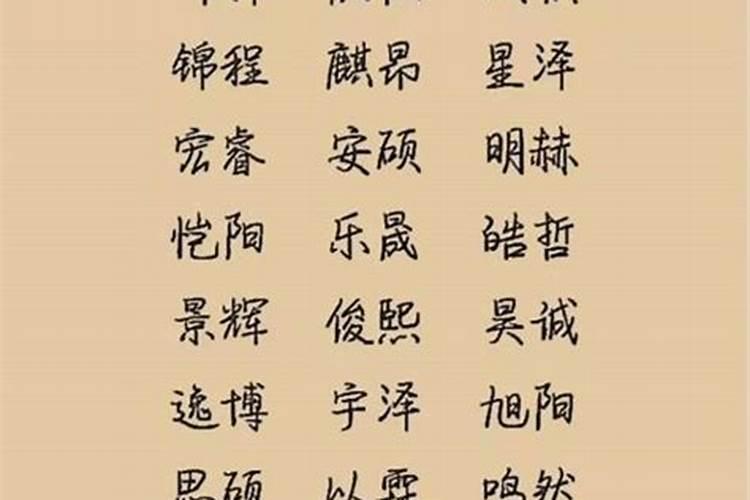 锦程 麒昂 星泽
宏睿 安硕 明赫
恺阳 乐晟 皓哲
景辉 俊熙 昊诚
逸博 宇泽 旭阳
思硕 以霖 鸣然